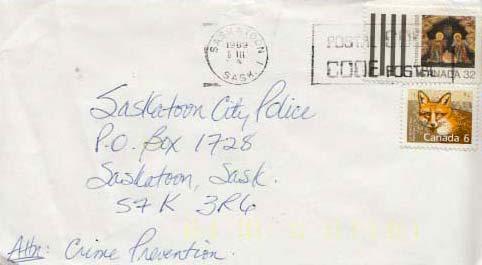 SASKATOON
1989
III
SASK.
POSTAL
CODE POSTAL
CANADA 32
Canada 6
Saskatoon City Police
P.O. Box 1728
Saskatoon, Sask.
S7K 3R6
Attn: Crime Prevention.